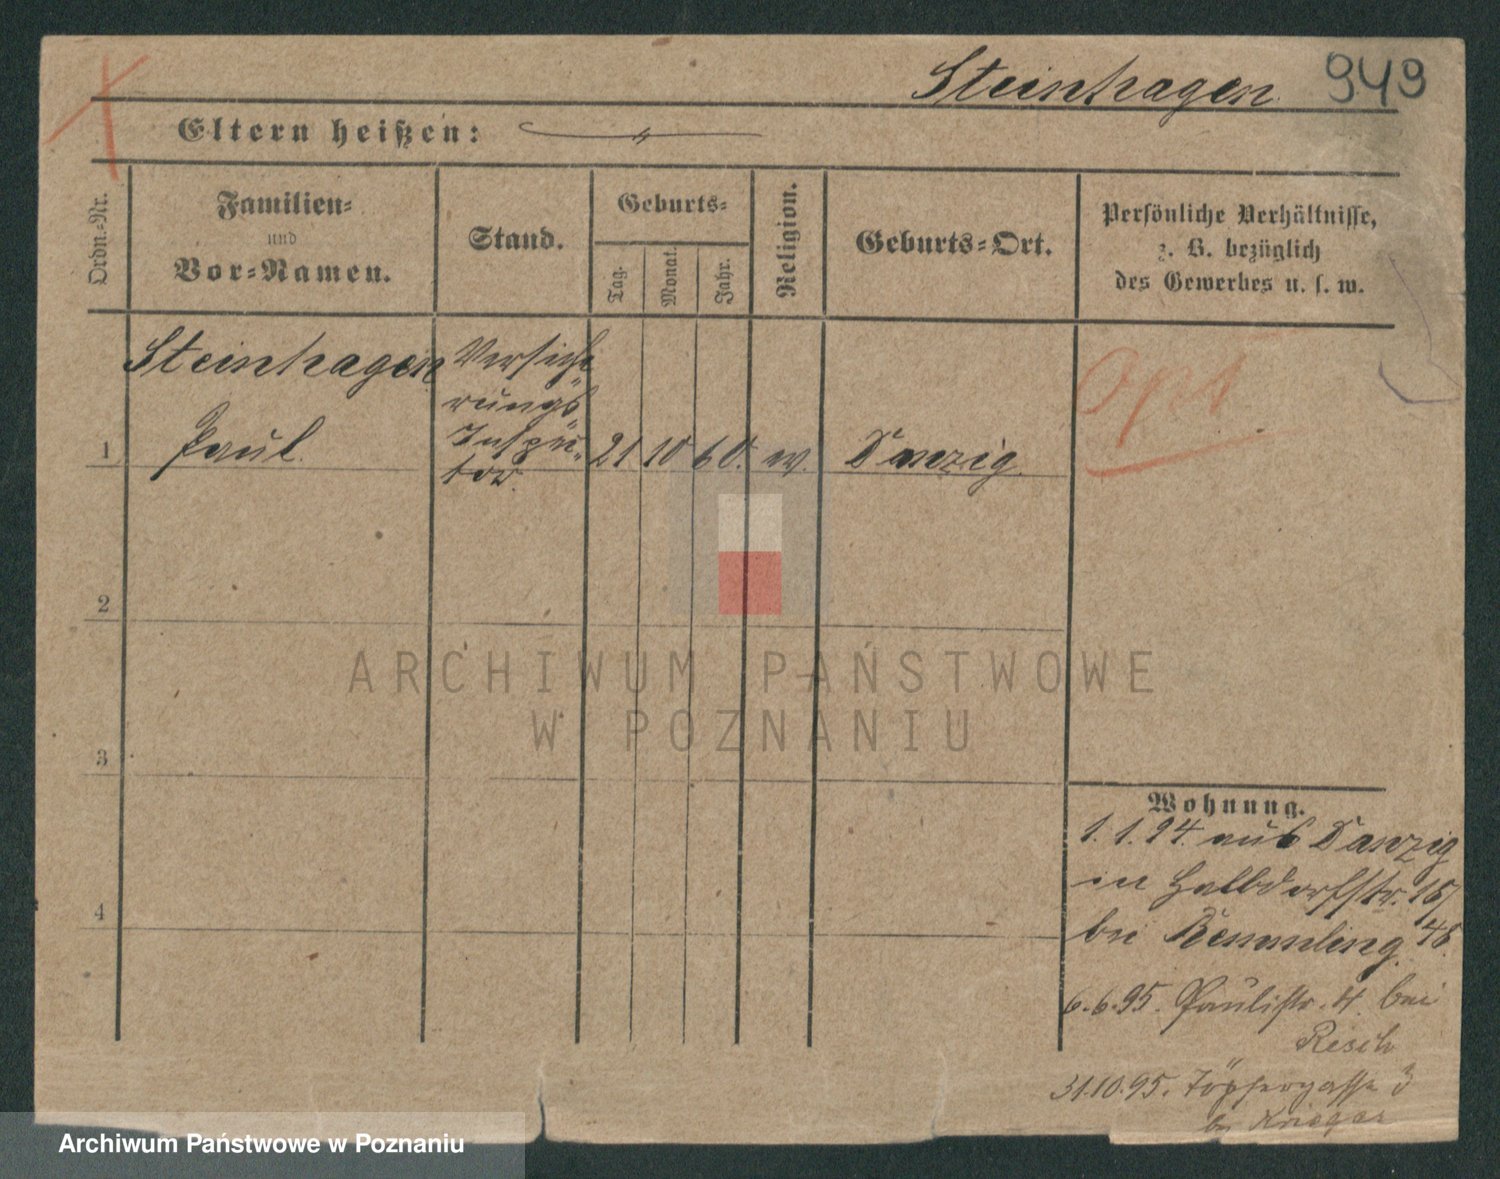 Steinhagen 949
Eltern heißen:
Ordn.-Nr.
Familien-
und
Vor-Namen.
Stand.
Geburts-
Tag.
Monat.
Jahr.
Religion.
Geburts-Ort.
Persönliche Verhältnisse,
z. B. bezüglich
des Gewerbes u. s. w.
Steinhagen
Paul.
Versiche-
rungs-
Inspek-
tor.
1 21 10 60. Danzig.
2
3
4
Wohnung.
1.1.94. aus Danzig
in Halbdorfstr.
bei Bemmling.
6.6.95. Paulistr. 4. bei
Resch
31.10.95. Töpfergasse 3
bei Krieger
ARCHIWUM PAŃSTWOWE
W POZNANIU
Archiwum Państwowe w Poznaniu